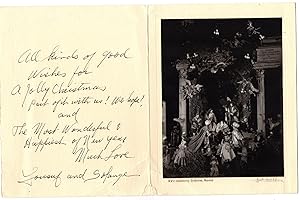 All kinds of good
Wishes for
A Jolly Christmas
part of it with us! We hope!
and
The Most Wonderful &
Happiest of New Year
Much Love
Yousuf and Solange